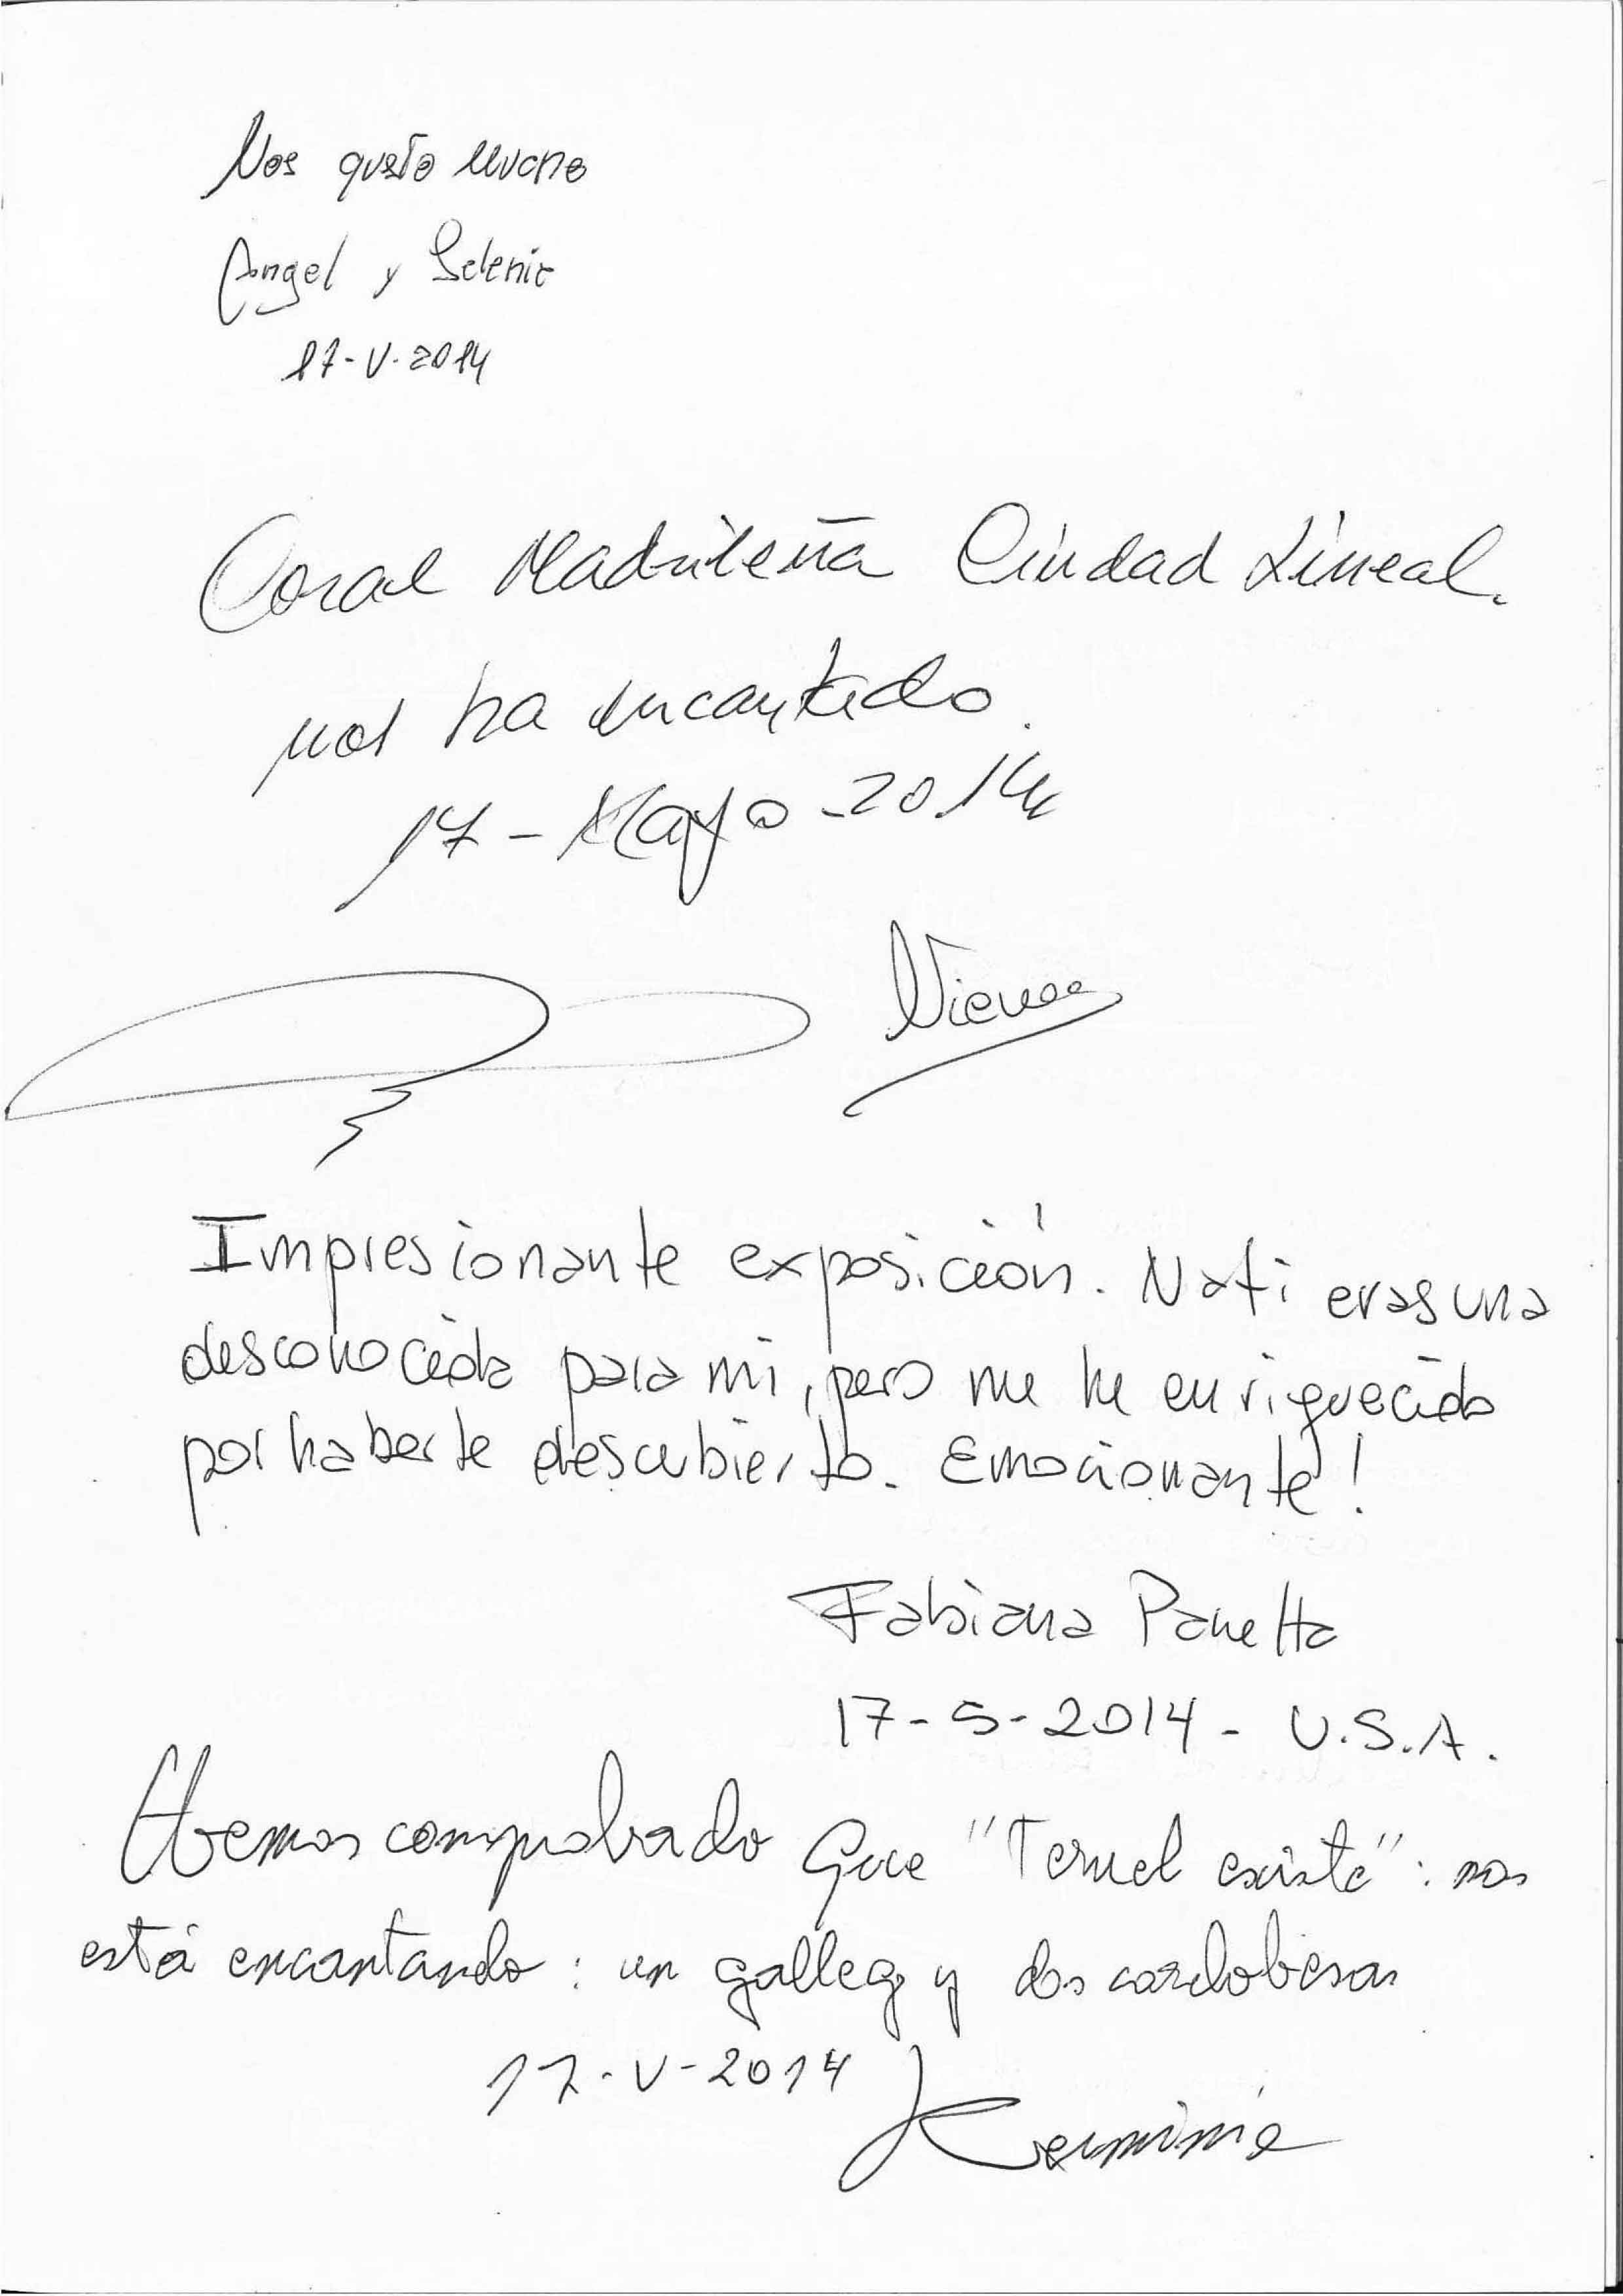 Nos gusto mucho
Angel y Selenie
17-V-2014
Coral Madrileña Ciudad Lineal.
nos ha encantado.
17-Mayo-2014
Nieves
Impresionante exposición. Nati eras una
desconocida para mi, pero me he enriquecido
por haberte descubierto. Emocionante!
Fabiana Panetta
17-5-2014- U.S.A.
Hemos comprobado que "Teruel existe": nos
está encantando: un gallego y dos cordobesas
17-V-2014